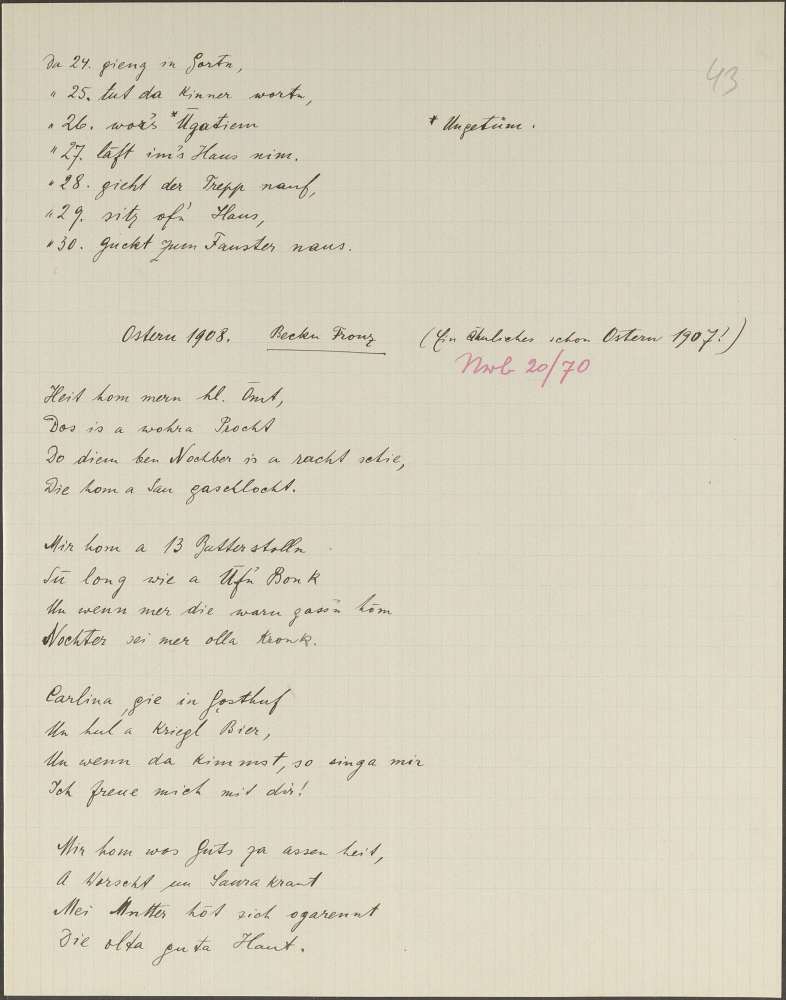 43
Da 24. gieng in Gortn,
" 25. tut da Kinner wortn,
" 26. wor's *Ūgatiem
* Ungetüm.
" 27. läft im's Haus nim.
" 28. gieht der Trepp nauf,
" 29. sitz ofn' Haus,
" 30. guckt zum Fanster naus.
Ostern 1908. Beckn Fronz (Ein ähnliches schon Ostern 1907!)
Nwb 20/70
Heit hom mern hl. Ōmt,
Dos is a wohra Procht
Do diem ben Nochber is a racht schie,
Die hom a Sau gaschlocht.
Mir hom a 13 Butterstolln
Sū long wie a Ūfn Bonk
Un wenn mer die warn gassn hōm
Nochter sei mer olla Kronk.
Carlina, gie in Gosthuf
Un hul a Kriegl Bier,
Un wenn da kimmst, so singa mir
Ich freue mich mit dir!
Mir hom wos Guts za assen heit,
A Worscht un Saurakraut
Mei Mutter hōt sich ogarennt
Die olta guta Haut.